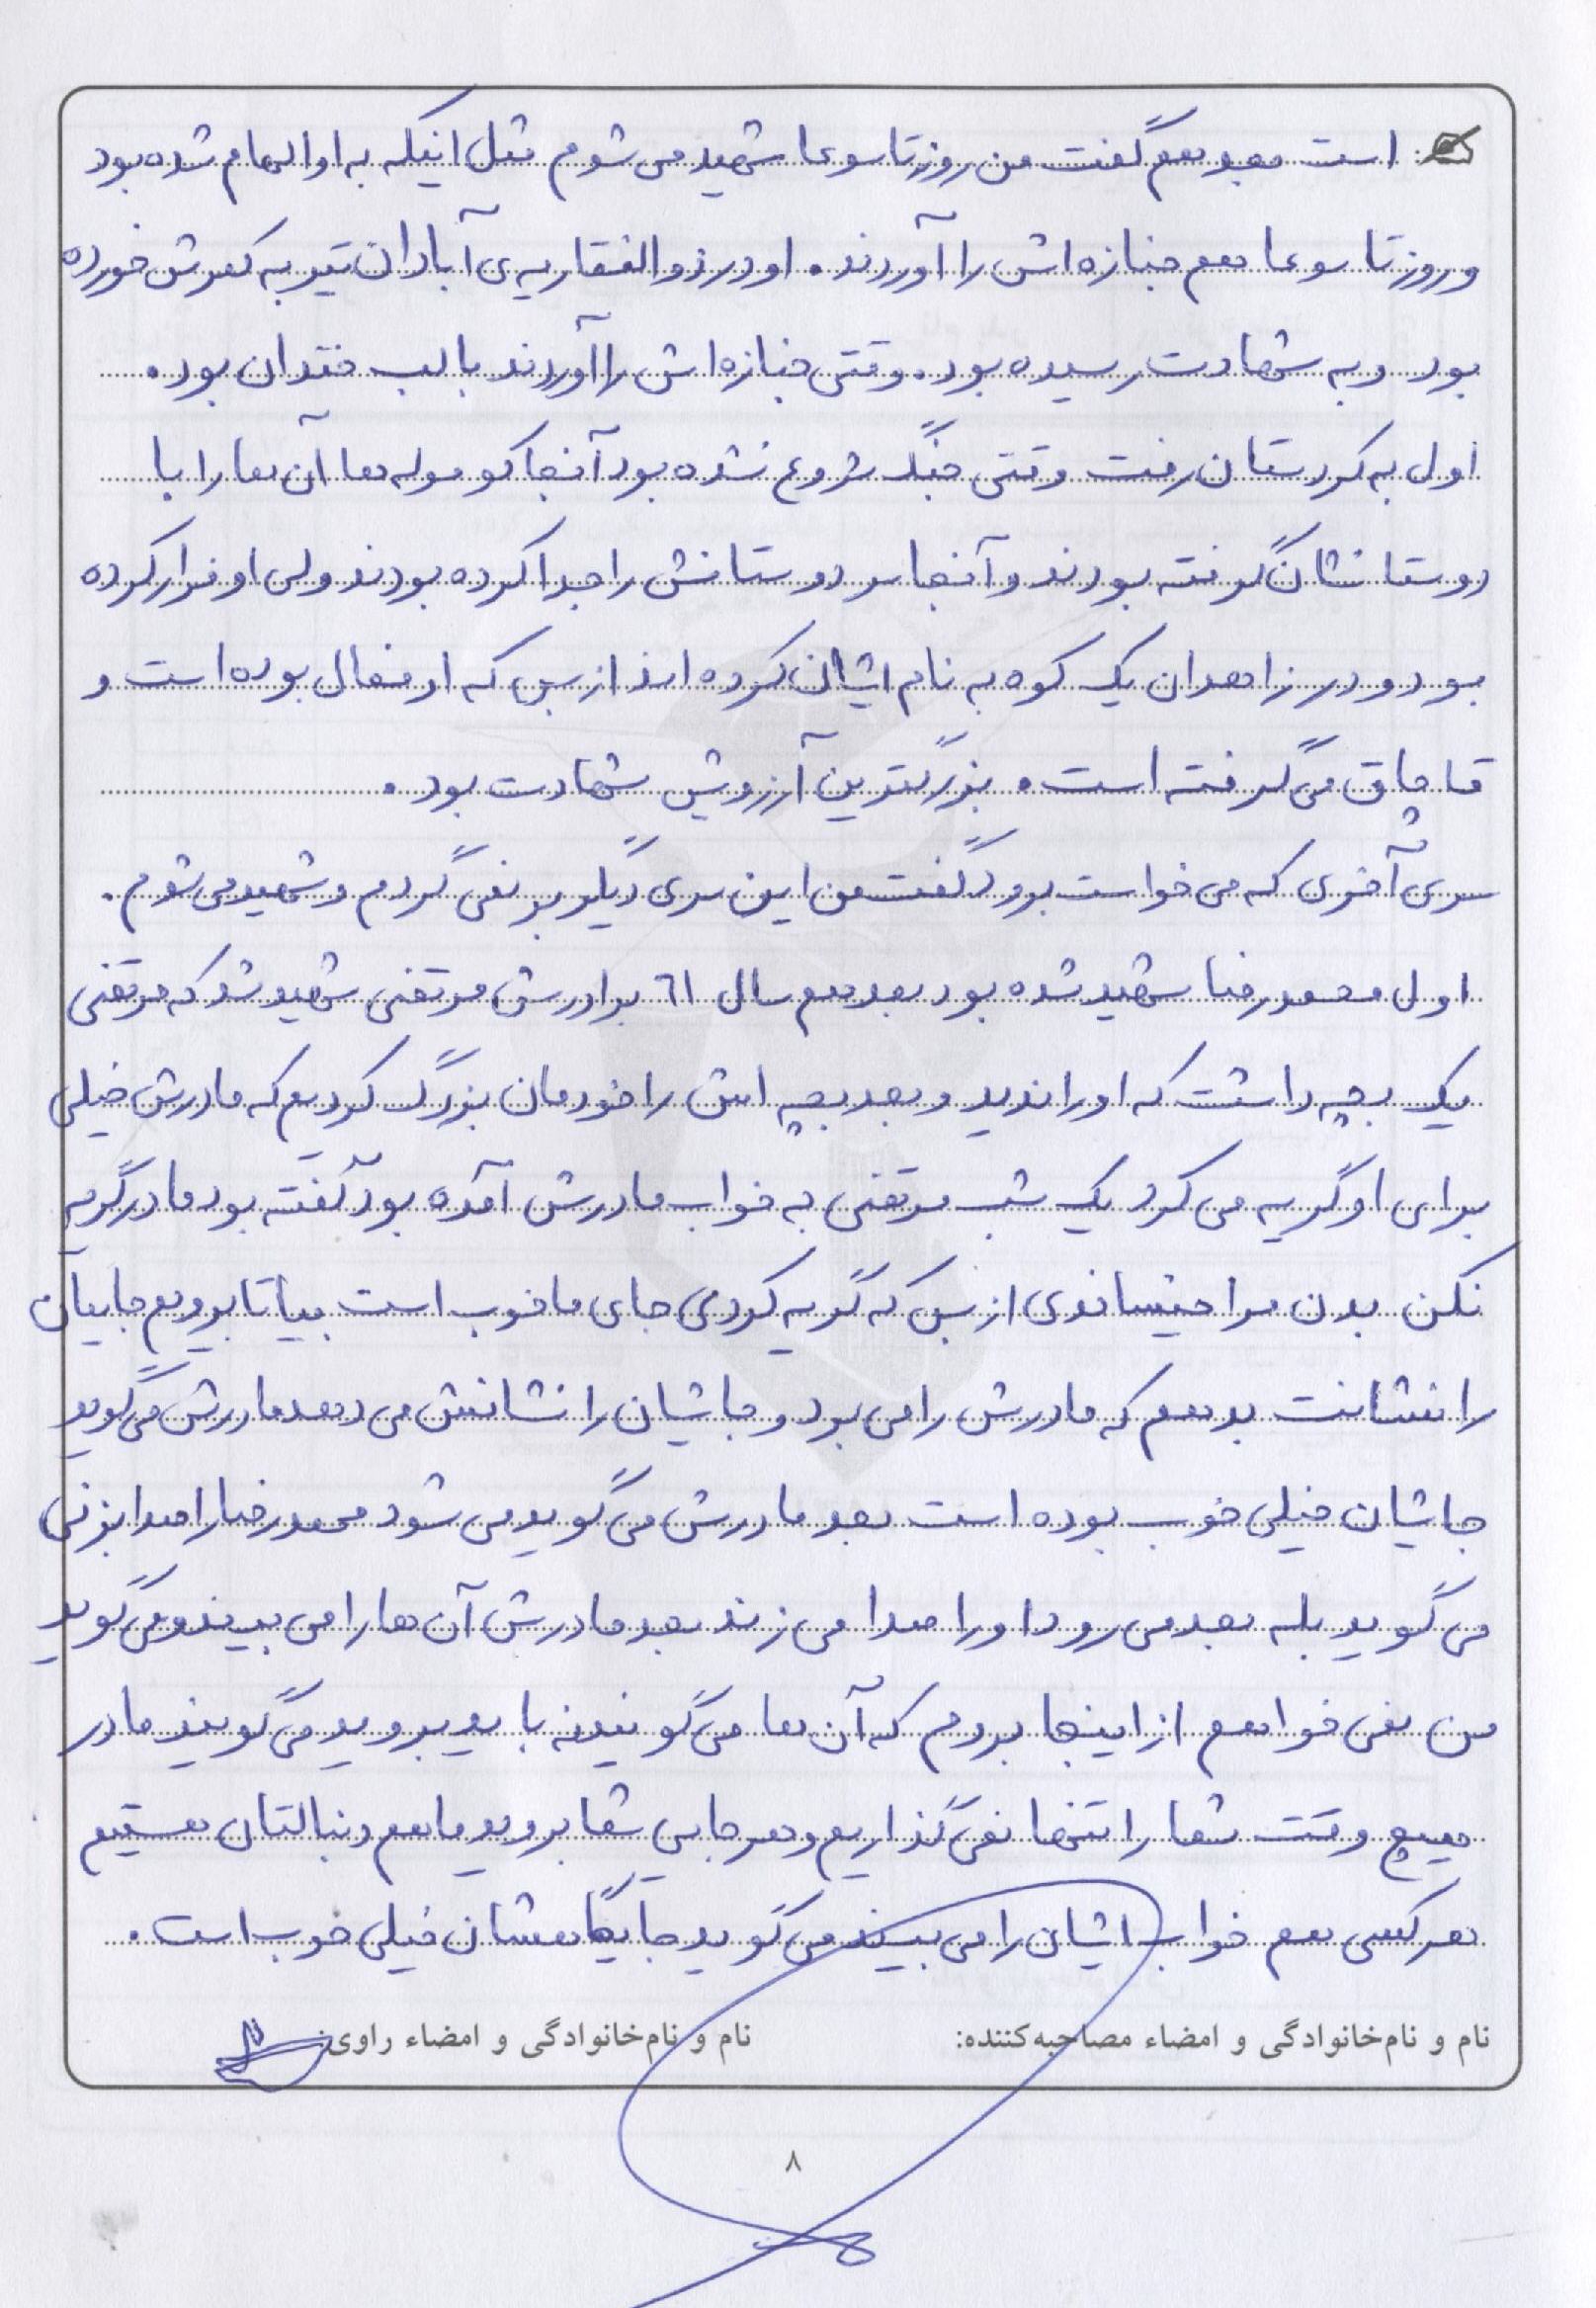 است بعد هم گفت من روز تاسوعا شهید می شوم مثل اینکه به او الهام شده بود
و روز تاسوعا هم جنازه اش را آوردند. او در ذوالفقاریه ی آبادان تیر به کمرش خورده
بود و به شهادت رسیده بود. وقتی جنازه اش را آوردند با لب خندان بود.
اول به کردستان رفت وقتی جنگ شروع نشده بود آنجا کوموله ها آن ها را با
دوستانشان گرفته بودند و آنجا سر دوستانش را جدا کرده بودند ولی او فرار کرده
بود و در زاهدان یک کوه به نام ایشان کرده اند از بس که او فعال بوده است و
قاچاق می گرفته است. بزرگترین آرزویش شهادت بود.
سری آخری که می خواست برود گفت من این سری دیگر بر نمی گردم و شهید می شوم.
اول محمدرضا شهید شده بود بعد هم سال ٦١ برادرش مرتضی شهید شد که مرتضی
یک بچه داشت که او را ندید و بعد بچه اش را خودمان بزرگ کردیم که مادرش خیلی
برای او گریه می کرد یک شب مرتضی به خواب مادرش آمده بود گفته بود مادر گریه
نکن بدن مرا خیساندی از بس که گریه کردی جای ما خوب است بیا تا برویم جایمان
را نشانت بدهم که مادرش را می برد و جایشان را نشانش می دهد مادرش می گوید
جایشان خیلی خوب بوده است بعد مادرش می گوید می شود محمدرضا را صدا بزنی
می گوید بله بعد می رود او را صدا می زند بعد مادرش آن ها را می بیند و می گوید
من نمی خواهم از اینجا بروم که آن ها می گویند نه باید بروید می گویند مادر
هیچ وقت شما را تنها نمی گذاریم و هر جایی شما بروید ما هم دنبالتان هستیم
هر کسی هم خواب ایشان را می بیند می گوید جایگاهشان خیلی خوب است.
نام و نام‌خانوادگی و امضاء مصاحبه‌کننده: نام و نام‌خانوادگی و امضاء راوی:
٨